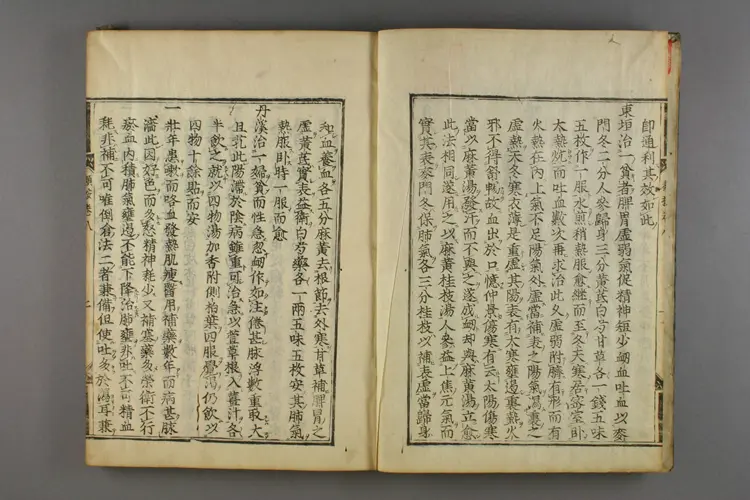 即通利其效如此
東垣治一貧者脾胃虛弱氣促精神短少衄血吐血以麥
門冬二分人參歸身三分黃芪白芍甘草各一錢五味
五枚作一服水煎稍熱服愈繼而至冬天寒居密室臥
大熱炕而吐血數次再求治此久虛弱附臍有形而有
火熱在內上氣不足陽氣外虛當補表之陽氣瀉裏之
虛熱夫冬寒衣薄是重虛其陽表有大寒壅遏裏熱火
邪不得舒伸故血出於口憶仲景傷寒有云太陽傷寒
當以麻黃湯發汗而不與之遂成衄却與麻黃湯立愈
此法相同遂用之以麻黃桂枝湯人參益上焦元氣而
實其表麥門冬保肺氣各三分桂枝以補表虛當歸身
和血養血各五分麻黃去根節去外寒甘草補脾胃之
虛黃芪實表益衛白芍藥各一兩五味五枚安其肺氣
熱服臥時一服而愈
丹溪治一婦貧而性急忽衄作如注倦甚脉浮數重取大
且芤此陽滯於陰病雖重可治急以萱草根入薑汁各
半飲之就以四物湯加香附側柏葉四服覺渴仍飲以
四物十餘貼而安
一壯年患嗽而咯血發熱肌瘦醫用補藥數年而病甚脉
濇此因好色而多怒精神耗少又補塞藥多榮衛不行
瘀血內積肺氣壅遏不能下降治肺壅非吐不可精血
耗非補不可唯倒倉法二者兼備但使吐多於瀉耳兼